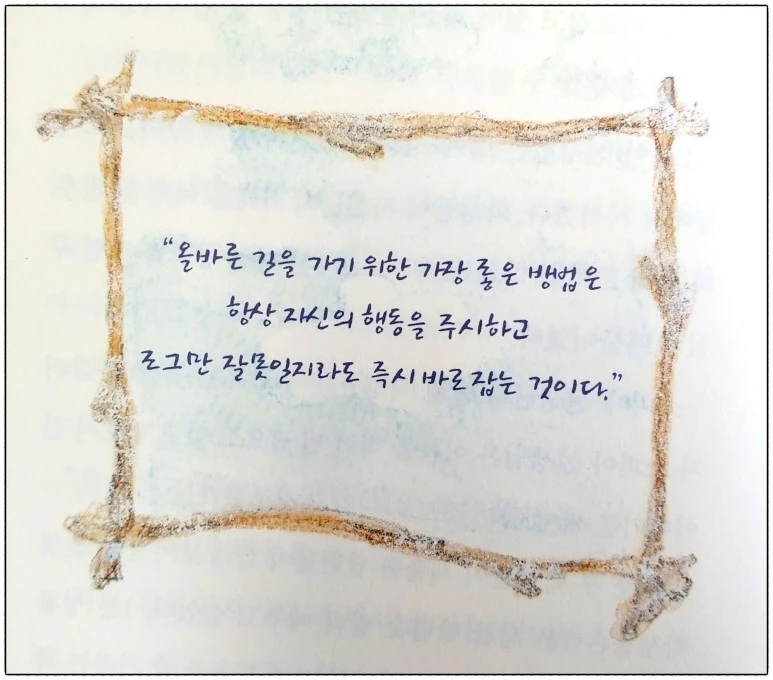 “올바른 길을 가기 위한 가장 좋은 방법은
항상 자신의 행동을 주시하고
조그만 잘못일지라도 즉시 바로잡는 것이다.”